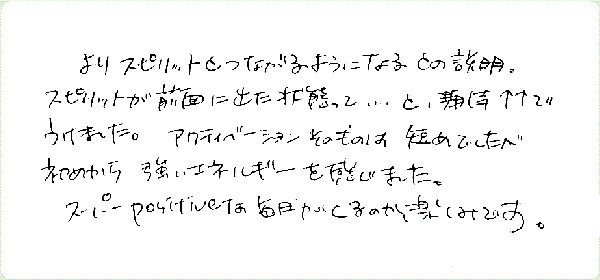 よりスピリットとつながるようになるとの説明。
スピリットが前面に出た状態って…と、期待↑↑で
うけました。アクティベーションそのものは 短めでしたが
初めから 強いエネルギーを感じました。
スーパーpositiveな毎日がくるのが楽しみです。